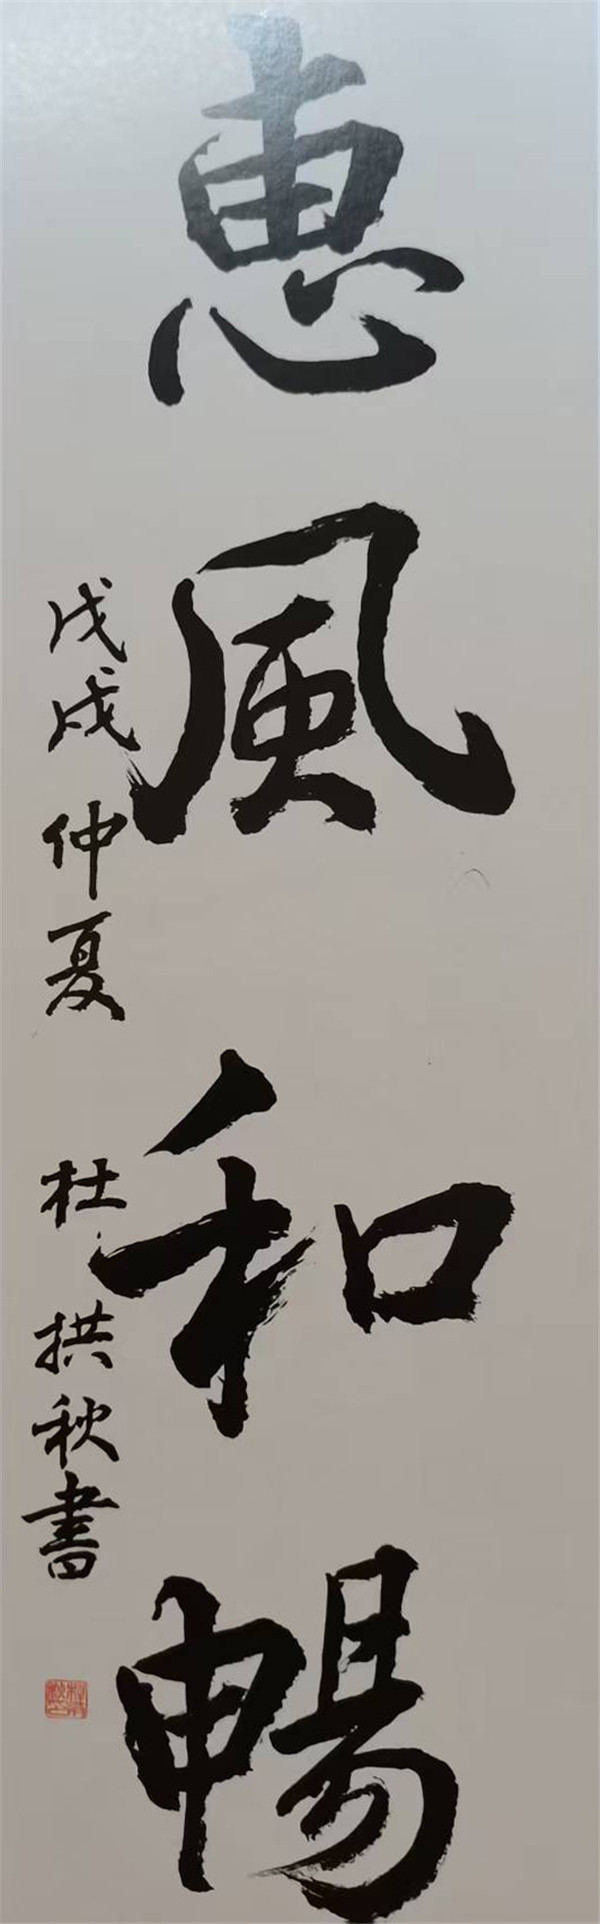 惠風和暢
戊戌仲夏 杜拱秋書